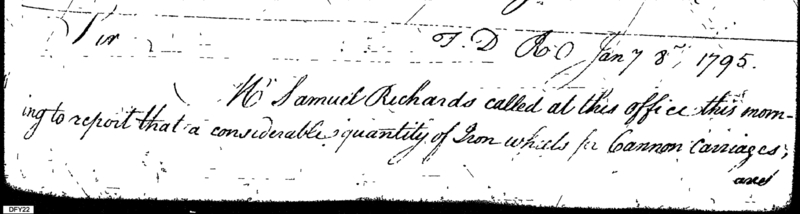 Sir
T. D. R O Jany 8th, 1795.
Mr Samuel Richards called at this office this morn-
ing to report that a considerable quantity of Iron wheels for Cannon Carriages;
and
DFY22